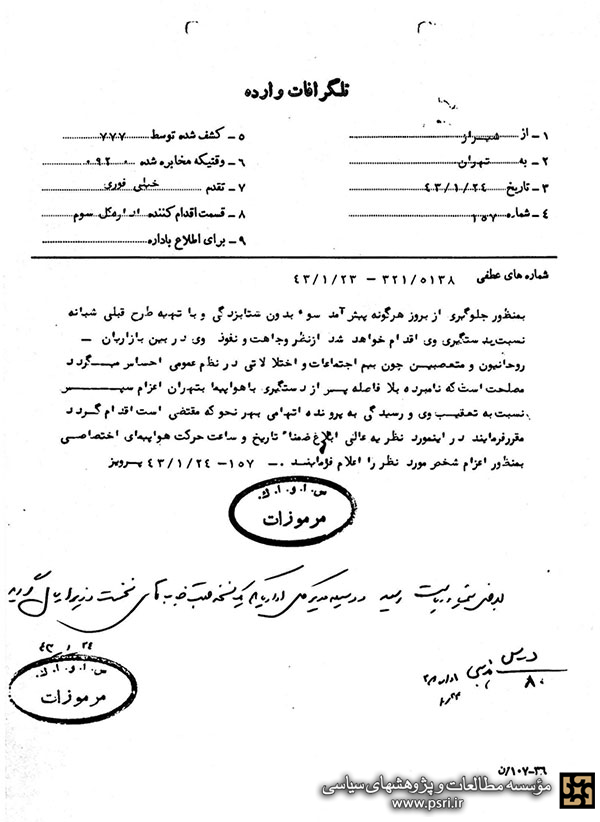 تلگرافات وارده
۱ – از شیراز
۲ – به تهران
۳ – تاریخ ۴۳/۱/۲۴
۴ – شماره ۱۵۷
۵ – کشف شده توسط ۷۷۷
۶ – وقتیکه مخابره شده ۰۹۲۰
۷ – تقدم خیلی فوری
۸ – قسمت اقدام کننده اداره کل سوم
۹ – برای اطلاع باداره
شماره های عطفی ۳۲۱/۵۱۳۸ – ۴۳/۱/۲۳
بمنظور جلوگیری از بروز هرگونه پیش آمد سوء بدون شتابزدگی و با تهیه طرح قبلی شبانه
نسبت بدستگیری وی اقدام خواهد شد از نظر وجاهت و نفوذ وی در بین بازاریان –
روحانیون و متعصبین چون بیم اجتماعات و اختلالاتی در نظم عمومی احساس میگردد
مصلحت است که نامبرده بلا فاصله پس از دستگیری با هواپیما بتهران اعزام سپس
نسبت به تعقیب وی و رسیدگی به پرونده اتهامی بهر نحو که مقتضی است اقدام گردد
مقرر فرمایند در اینمورد نظریه عالی ابلاغ ضمناً تاریخ و ساعت حرکت هواپیمای اختصاصی
بمنظور اعزام شخص مورد نظر را اعلام فرمایند ۰– ۱۵۷ – ۴۳/۱/۲۴ پرویز
س. ا. و. ا. ک.
مرموزات
بعرض رسید
نخست وزیر ارسال گردید
۲۴/۱/۴۳
س. ا. و. ا. ک.
مرموزات
۸۰
۳۶–۱۰۷/ن
مؤسسه مطالعات و پژوهشهای سیاسی
www.psri.ir